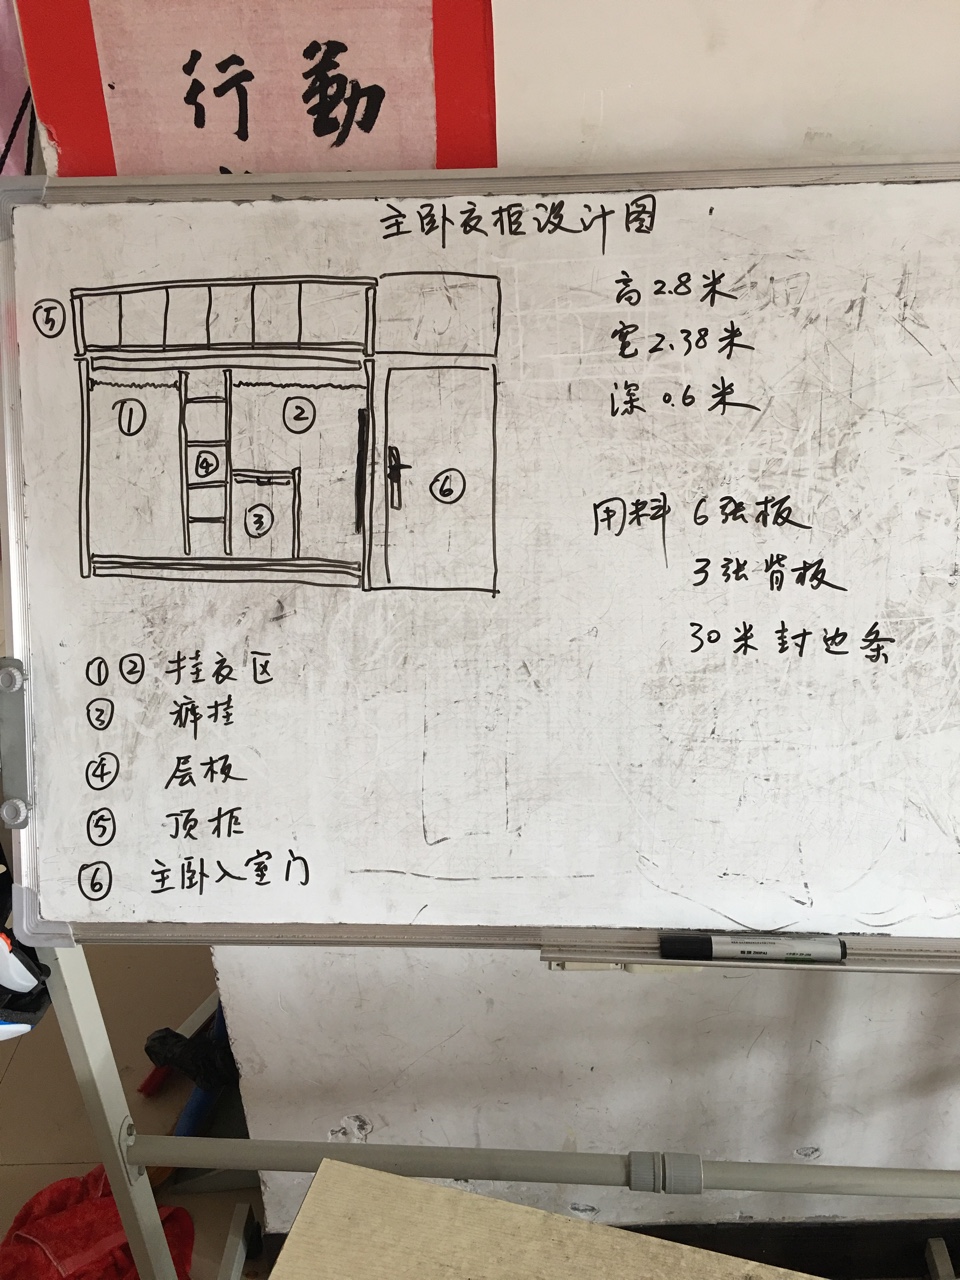 勤
行
主卧衣柜设计图
高2.8米
宽2.38米
深 0.6米
用料 6张板
3张背板
30米封边条
⑤
①
②
④
③
⑥
①② 挂衣区
③ 裤挂
④ 层板
⑤ 顶柜
⑥ 主卧入室门